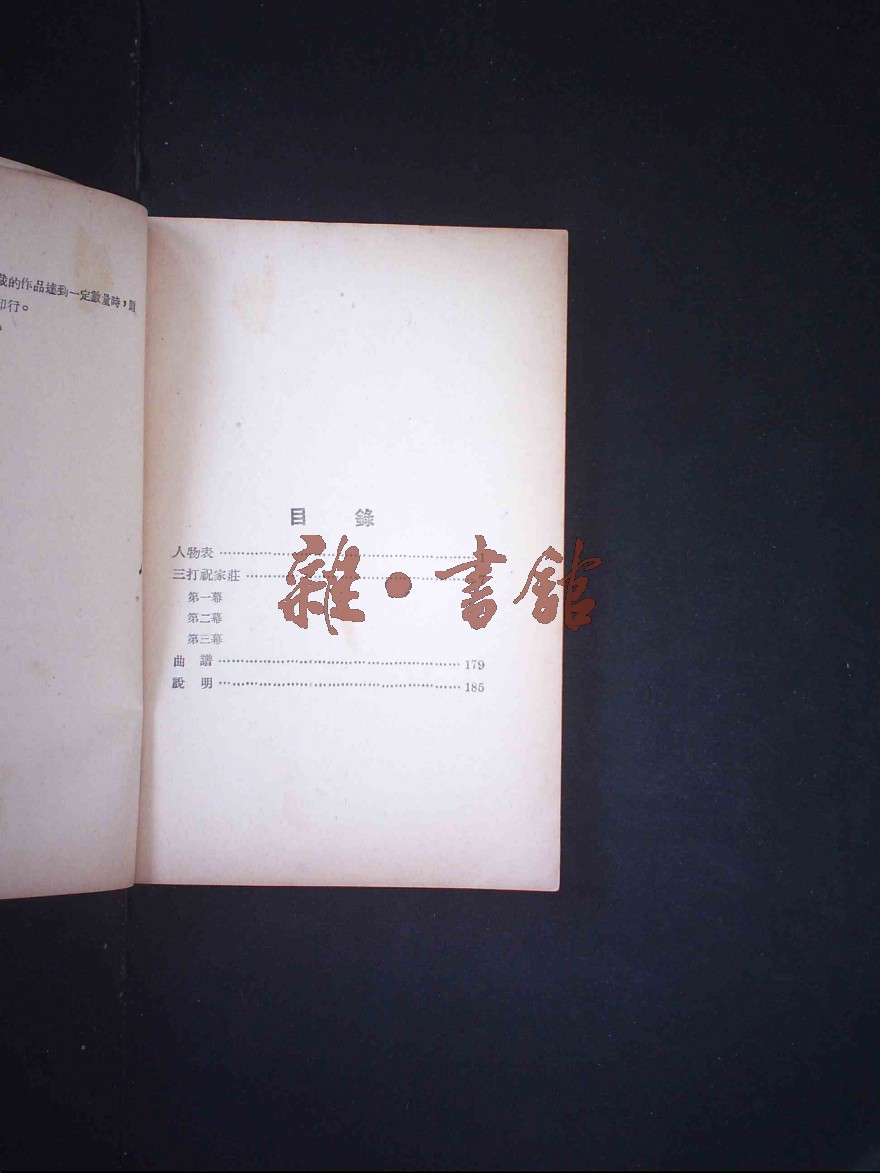 載的作品達到一定數量時，
印行。
目 錄
人物表 1
三打祝家莊
第一幕
第二幕
第三幕
曲 譜 179
說 明 185
雜·書舘